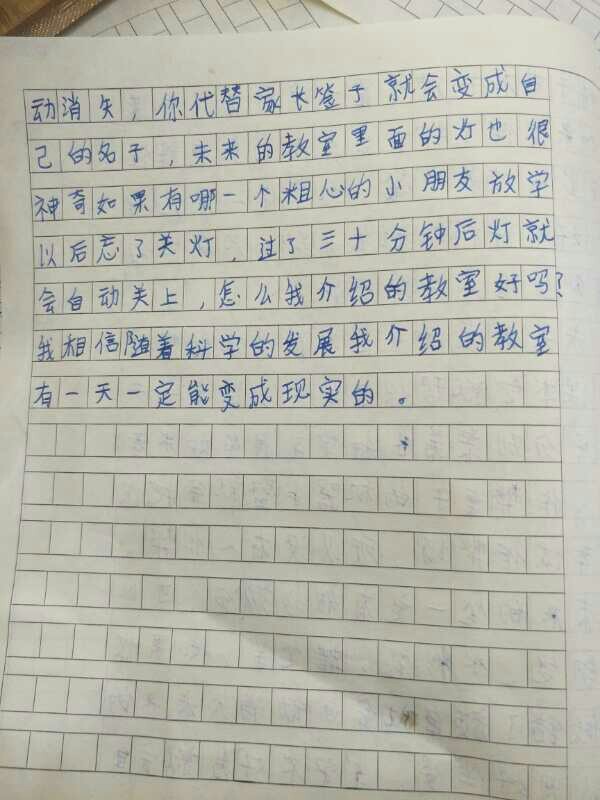 动消失，你代替家长签子就会变成自
己的名子，未来的教室里面的灯也很
神奇如果有哪一个粗心的小朋友放学
以后忘了关灯，过了三十分钟后灯就
会自动关上，怎么我介绍的教室好吗？
我相信随着科学的发展我介绍的教室
有一天一定能变成现实的。